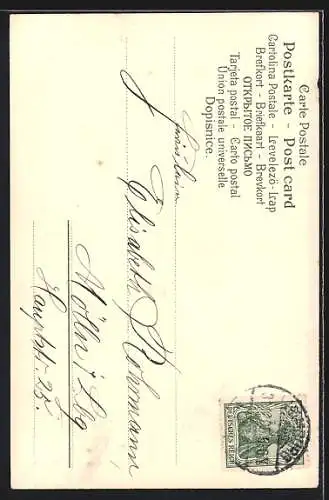 Carte Postale
Postkarte - Post card
Cartolina Postale - Levelező-Lap
Brefkort - Briefkaart - Brevkort
ОТКРЫТОЕ ПИСЬМО
Tarjeta postal - Carto postal
Union postale universelle
Dopisnice.
Fräulein
Elisabeth Rohrmann
Mölln i/Lbg
Hauptstr. 25.
DEUTSCHES REICH